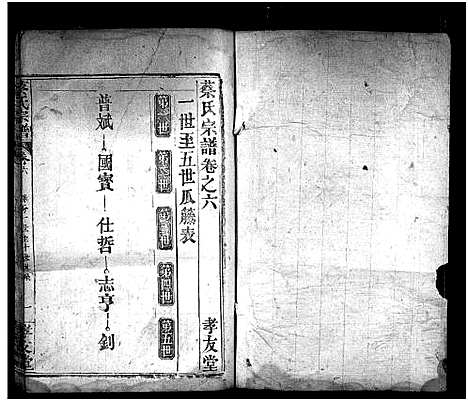 蔡氏宗譜卷之六
孝友堂
一世至五世瓜藤表
第一世 第二世 第三世 第四世 第五世
普斌 國寶 仕哲 志亨 釗